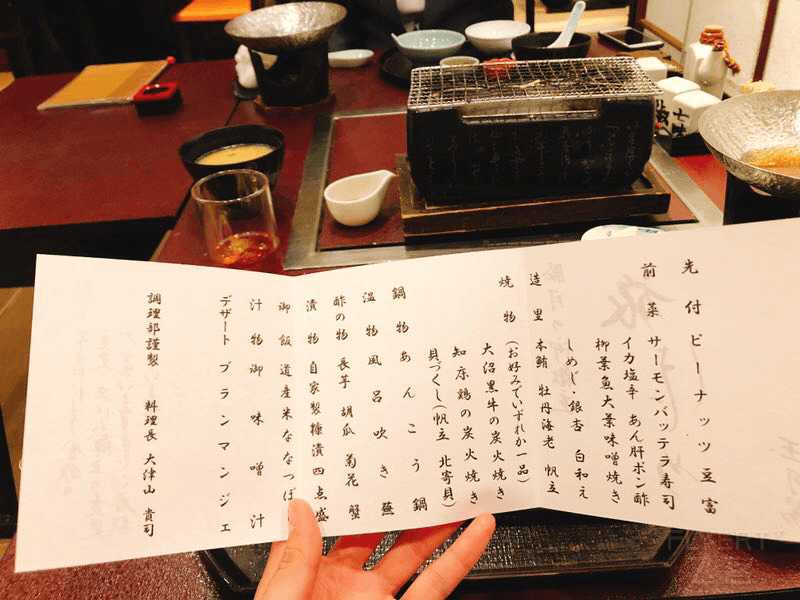 先付 ピーナッツ豆富
前菜 サーモンバッテラ寿司
イカ塩辛 あん肝ポン酢
柳葉魚大葉味噌焼き
しめじ 銀杏 白和え
造里 本鮪 牡丹海老 帆立
焼物 (お好みでいずれか一品)
大沼黒牛の炭火焼き
知床鶏の炭火焼き
貝づくし(帆立 北寄貝)
鍋物 あんこう鍋
温物 風呂吹き蕪
酢の物 長芋 胡瓜 菊花 蟹
漬物 自家製糠漬四点盛
御飯 道産米ななつぼ
汁物 御味噌汁
デザート ブランマンジェ
調理部謹製 料理長 大津山 貴司
七味